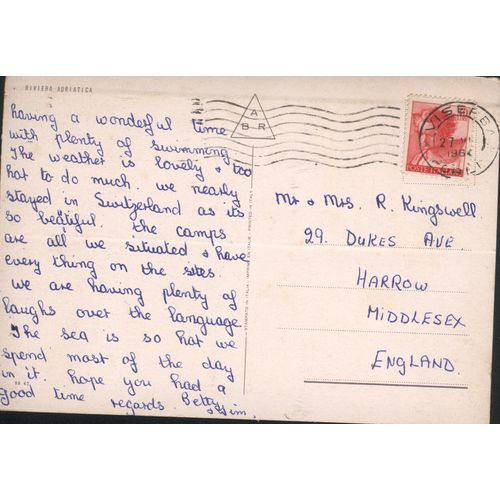 RIVIERA ADRIATICA
having a wonderful time
with plenty of swimming
The weather is lovely & too
hot to do much. we nearly
stayed in Switzerland as its
so beatiful. the camps
are all we situated & have
every thing on the sites.
we are having plenty of
laughs over the language
The sea is so hot we
spend most of the day
in it. hope you had a
good time regards Betty
Jim.
STAMPATO IN ITALIA - IMPRIMÉ EN ITALIE - PRINTED IN ITALY
A
B R
27
1964
POSTE ITALIANE
Mr & Mrs. R. Kingswell.
29. DUKES AVE.
HARROW
MIDDLESEX
ENGLAND.